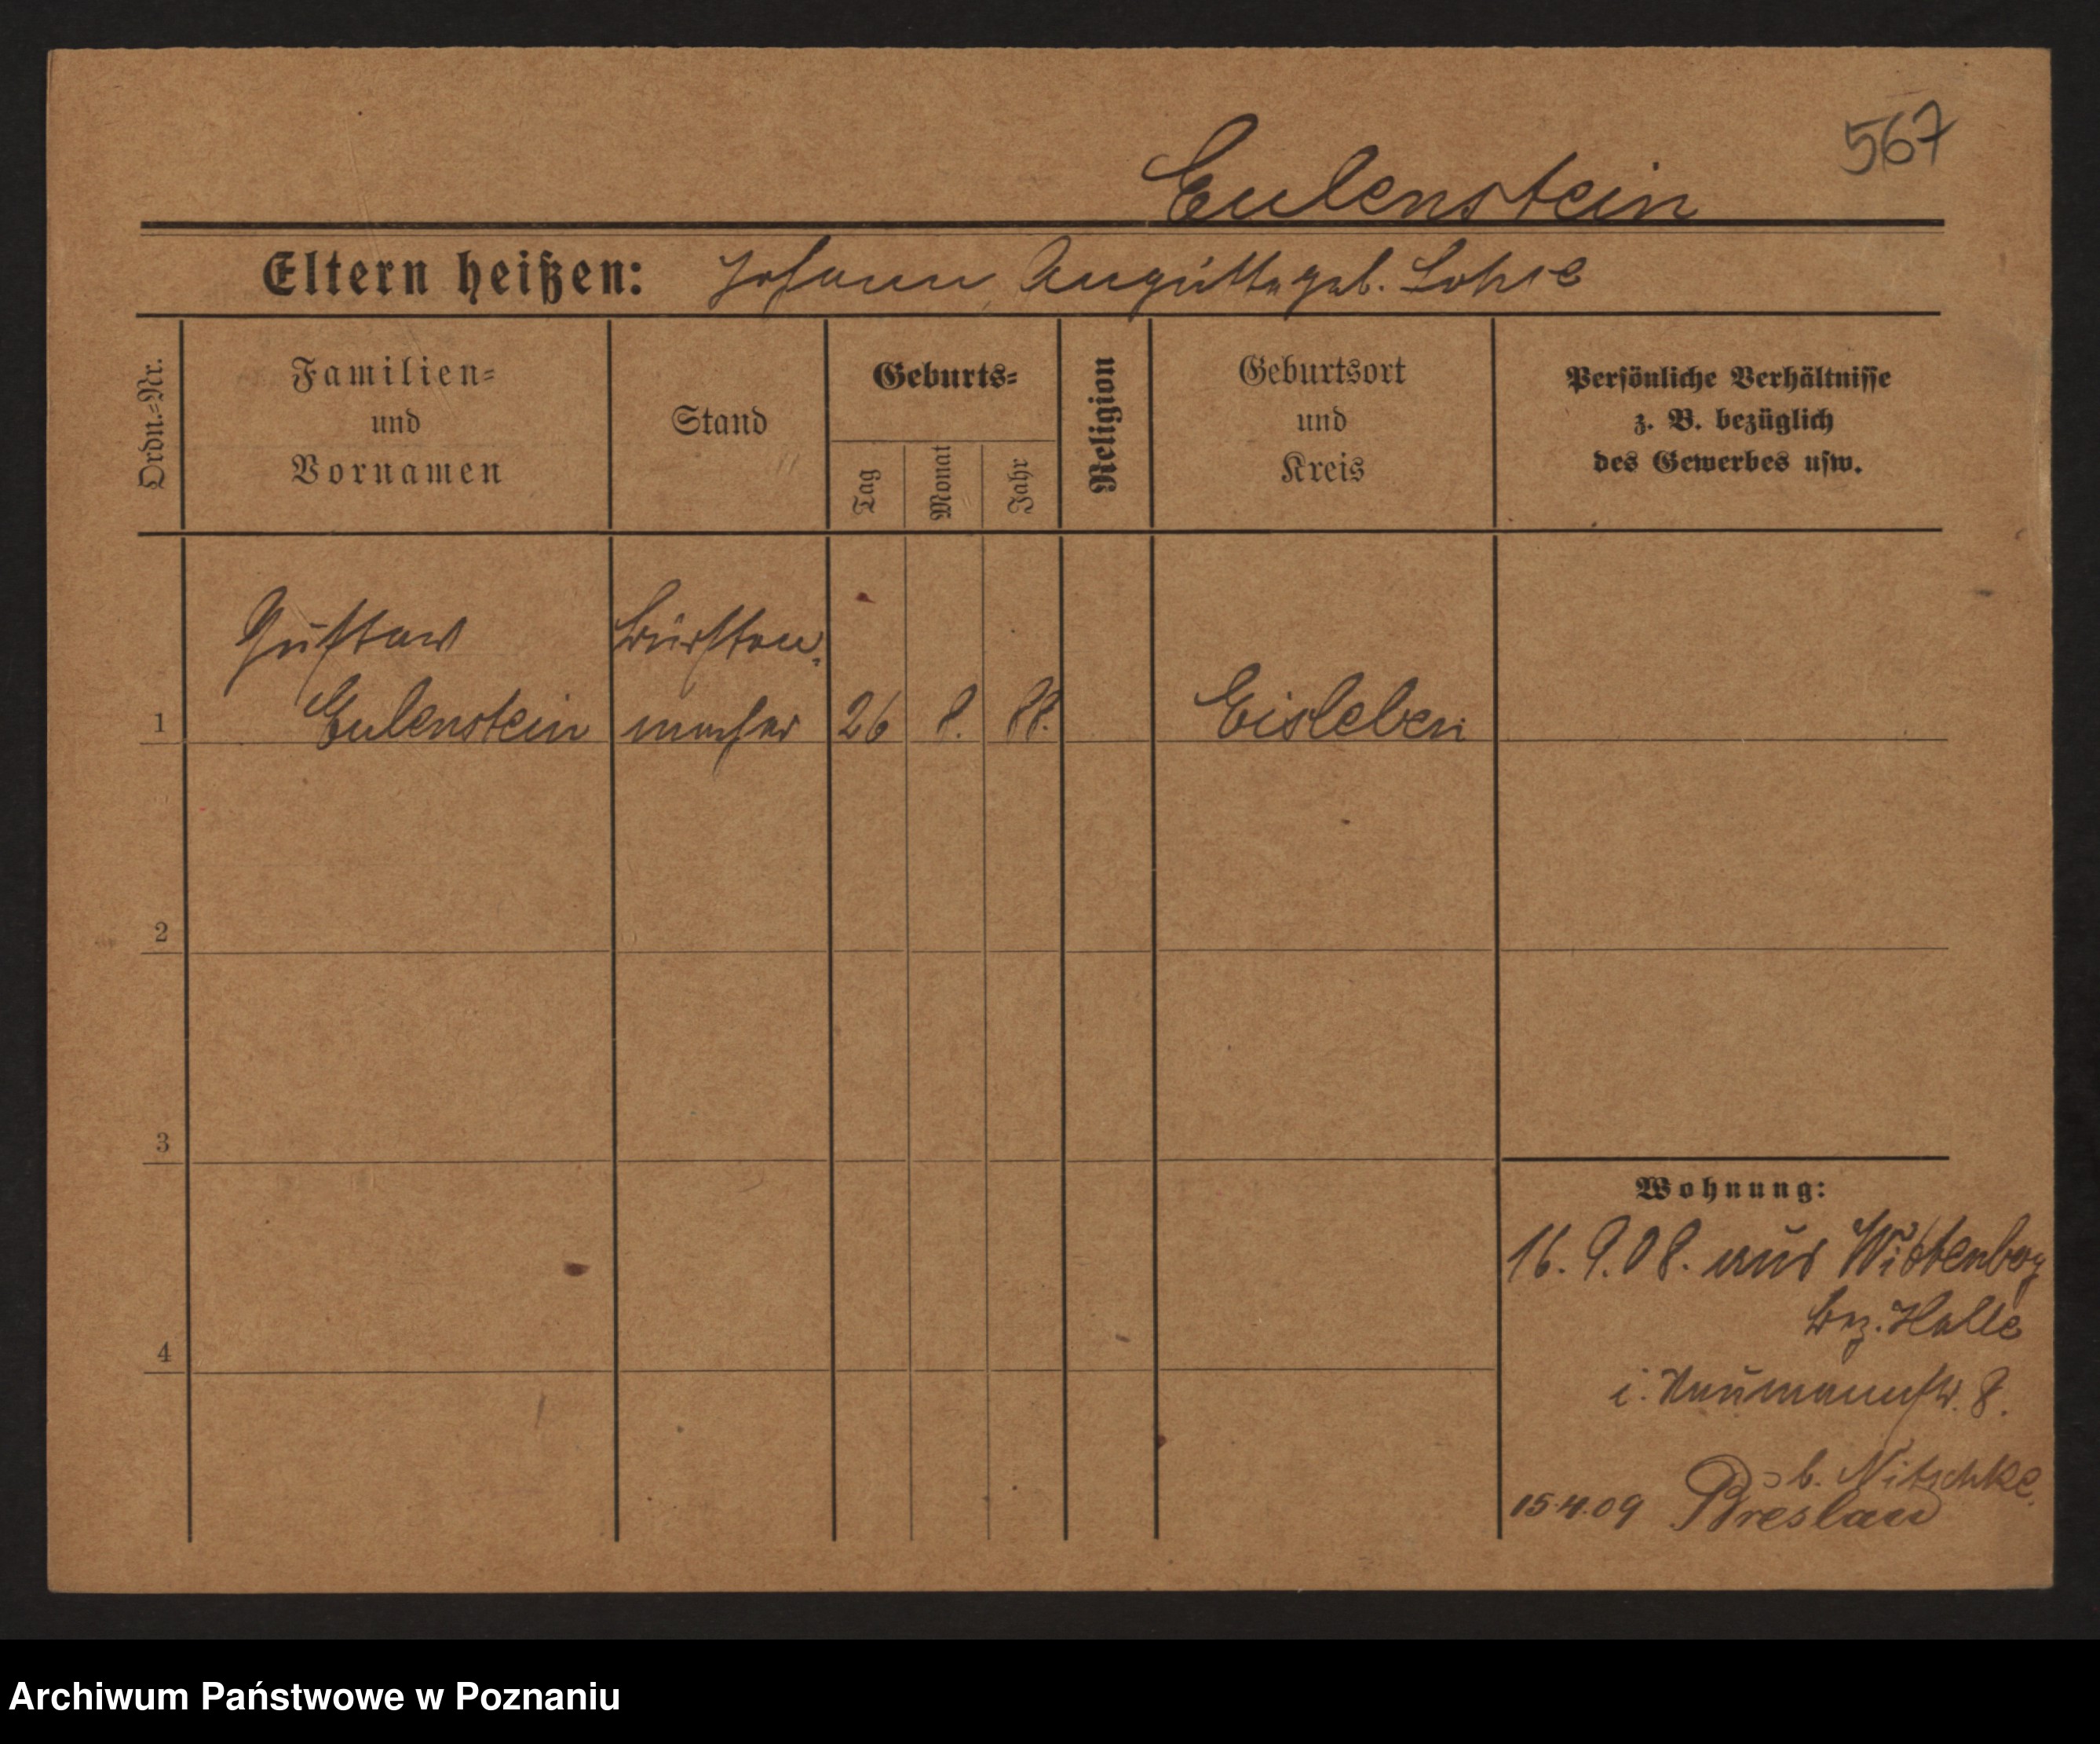 567
Eulenstein
Eltern heißen: Johann, Auguste geb. Lohse
Ordn.-Nr.
Familien-
und
Vornamen
Stand
Geburts-
Tag
Monat
Jahr
Religion
Geburtsort
und
Kreis
Persönliche Verhältnisse
z. B. bezüglich
des Gewerbes usw.
Gustav Bürsten-
1 Eulenstein macher 26 8. 88. Eisleben
2
3
4
Wohnung:
16. 9. 08. aus Wittenberg
Bez. Halle
i. Naumannstr. 8.
b. Nitschke.
15.4.09 Breslau
Archiwum Państwowe w Poznaniu